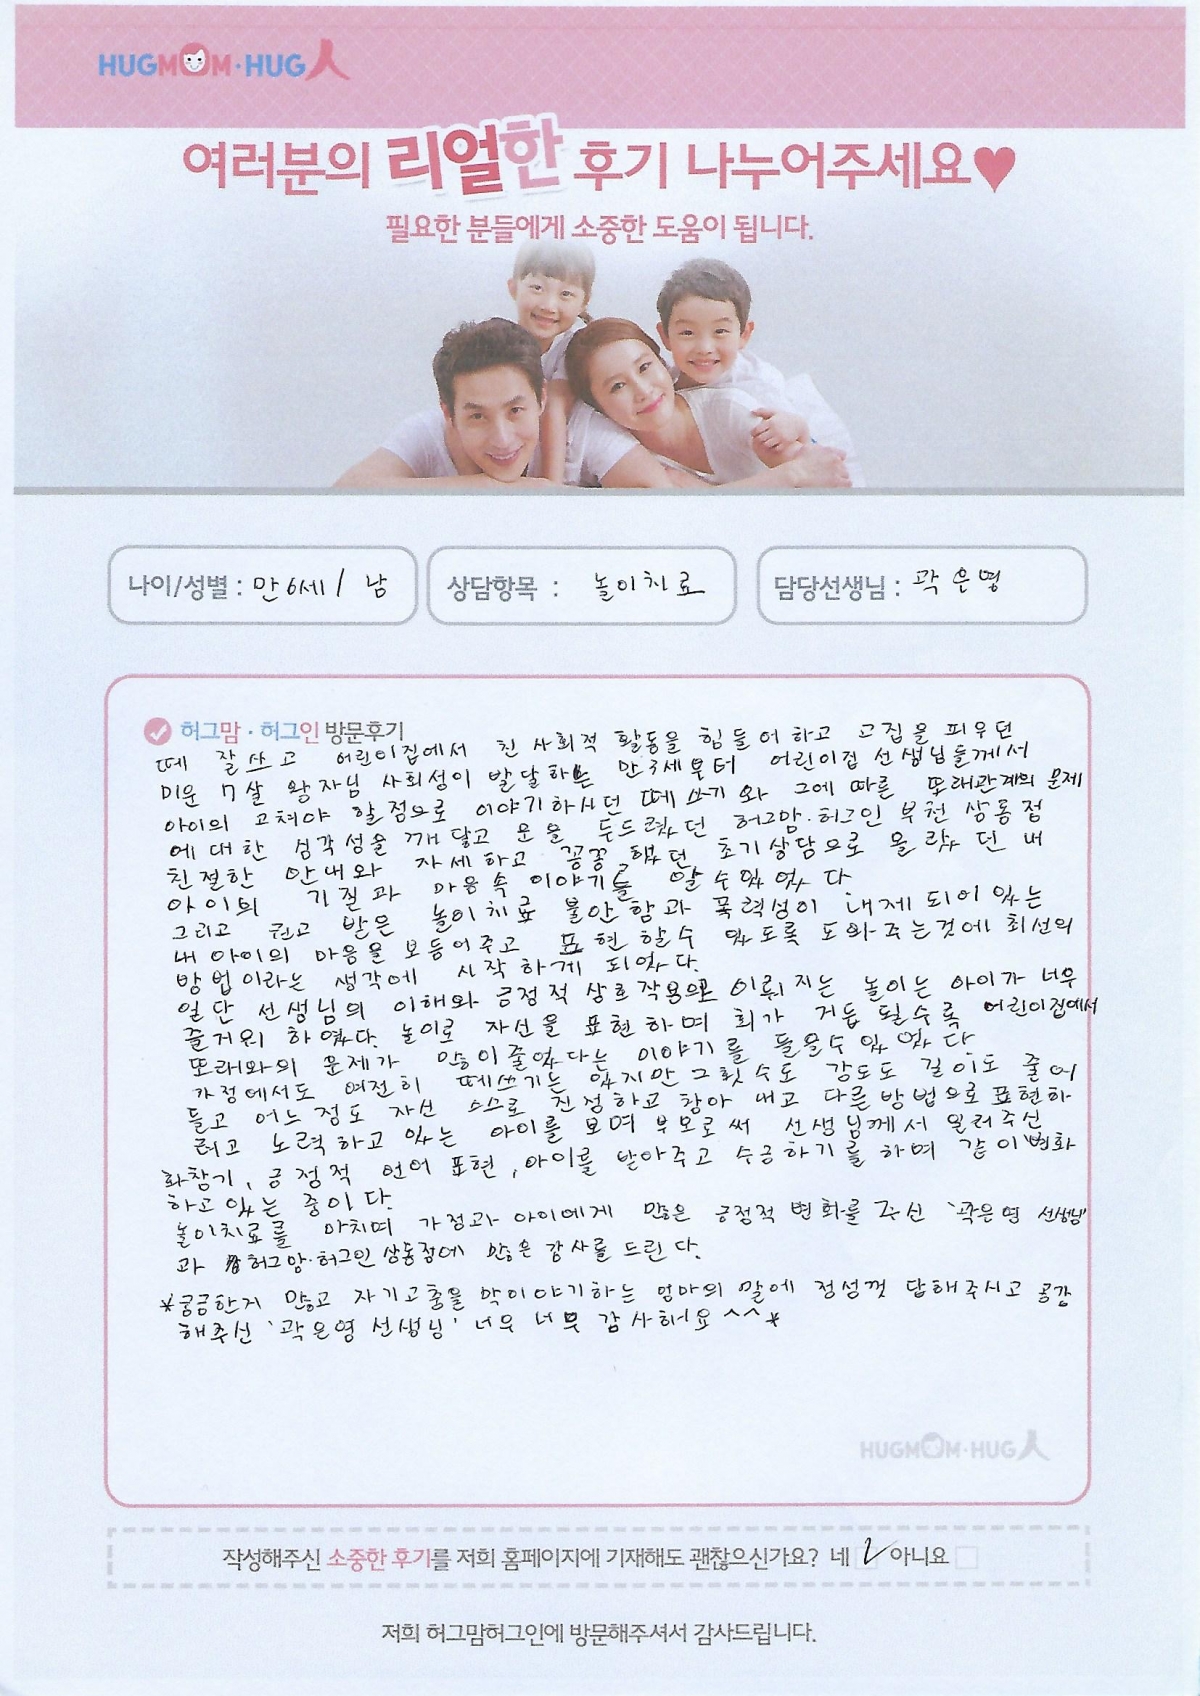 HUGMOM·HUG人
여러분의 리얼한 후기 나누어주세요♥
필요한 분들에게 소중한 도움이 됩니다.
나이/성별 : 만 6세 / 남
상담항목 : 놀이치료
담당선생님 : 곽은영
허그맘 · 허그인 방문후기
떼 잘쓰고 어린이집에서 친 사회적 활동을 힘들어 하고 고집을 피우던
미운 7살 왕자님 사회성이 발달하는 만 3세부터 어린이집 선생님들께서
아이의 고쳐야 할점으로 이야기하시던 떼쓰기와 그에 따른 또래관계의 문제
에 대한 심각성을 깨닫고 문을 두드렸던 허그맘·허그인 부천 상동점
친절한 안내와 자세하고 꼼꼼했던 초기상담으로 몰랐던 내
아이의 기질과 마음속 이야기를 알 수 있었다
그리고 권고 받은 놀이치료 불안함과 폭력성이 내제 되어 있는
내 아이의 마음을 보듬어주고 표현 할수 있도록 도와주는것에 최선의
방법이라는 생각에 시작하게 되었다.
일단 선생님의 이해와 긍정적 상호작용으로 이뤄지는 놀이는 아이가 너무
즐거워 하였다. 놀이로 자신을 표현하며 회가 거듭 될수록 어린이집에서
또래와의 문제가 많이 줄었다는 이야기를 들을수 있었다
가정에서도 여전히 떼쓰기는 있지만 그 횟수도 강도도 길이도 줄어
들고 어느정도 자신 스스로 진정하고 참아 내고 다른 방법으로 표현하
려고 노력하고 있는 아이를 보며 부모로써 선생님께서 알려주신
화참기, 긍정적 언어 표현, 아이를 받아주고 수긍하기를 하며 같이 변화
하고 있는 중이다.
놀이치료를 마치며 가정과 아이에게 많은 긍정적 변화를 주신 '곽은영 선생님'
과 허그맘·허그인 상동점에 많은 감사를 드린다.
*궁금한거 많고 자기고충을 막이야기하는 엄마의 말에 정성껏 답해주시고 공감
해주신 '곽은영 선생님' 너무 너무 감사해요 ^^*
HUGMOM·HUG人
작성해주신 소중한 후기를 저희 홈페이지에 기재해도 괜찮으신가요? 네 ✓ 아니요 □
저희 허그맘허그인에 방문해주셔서 감사드립니다.